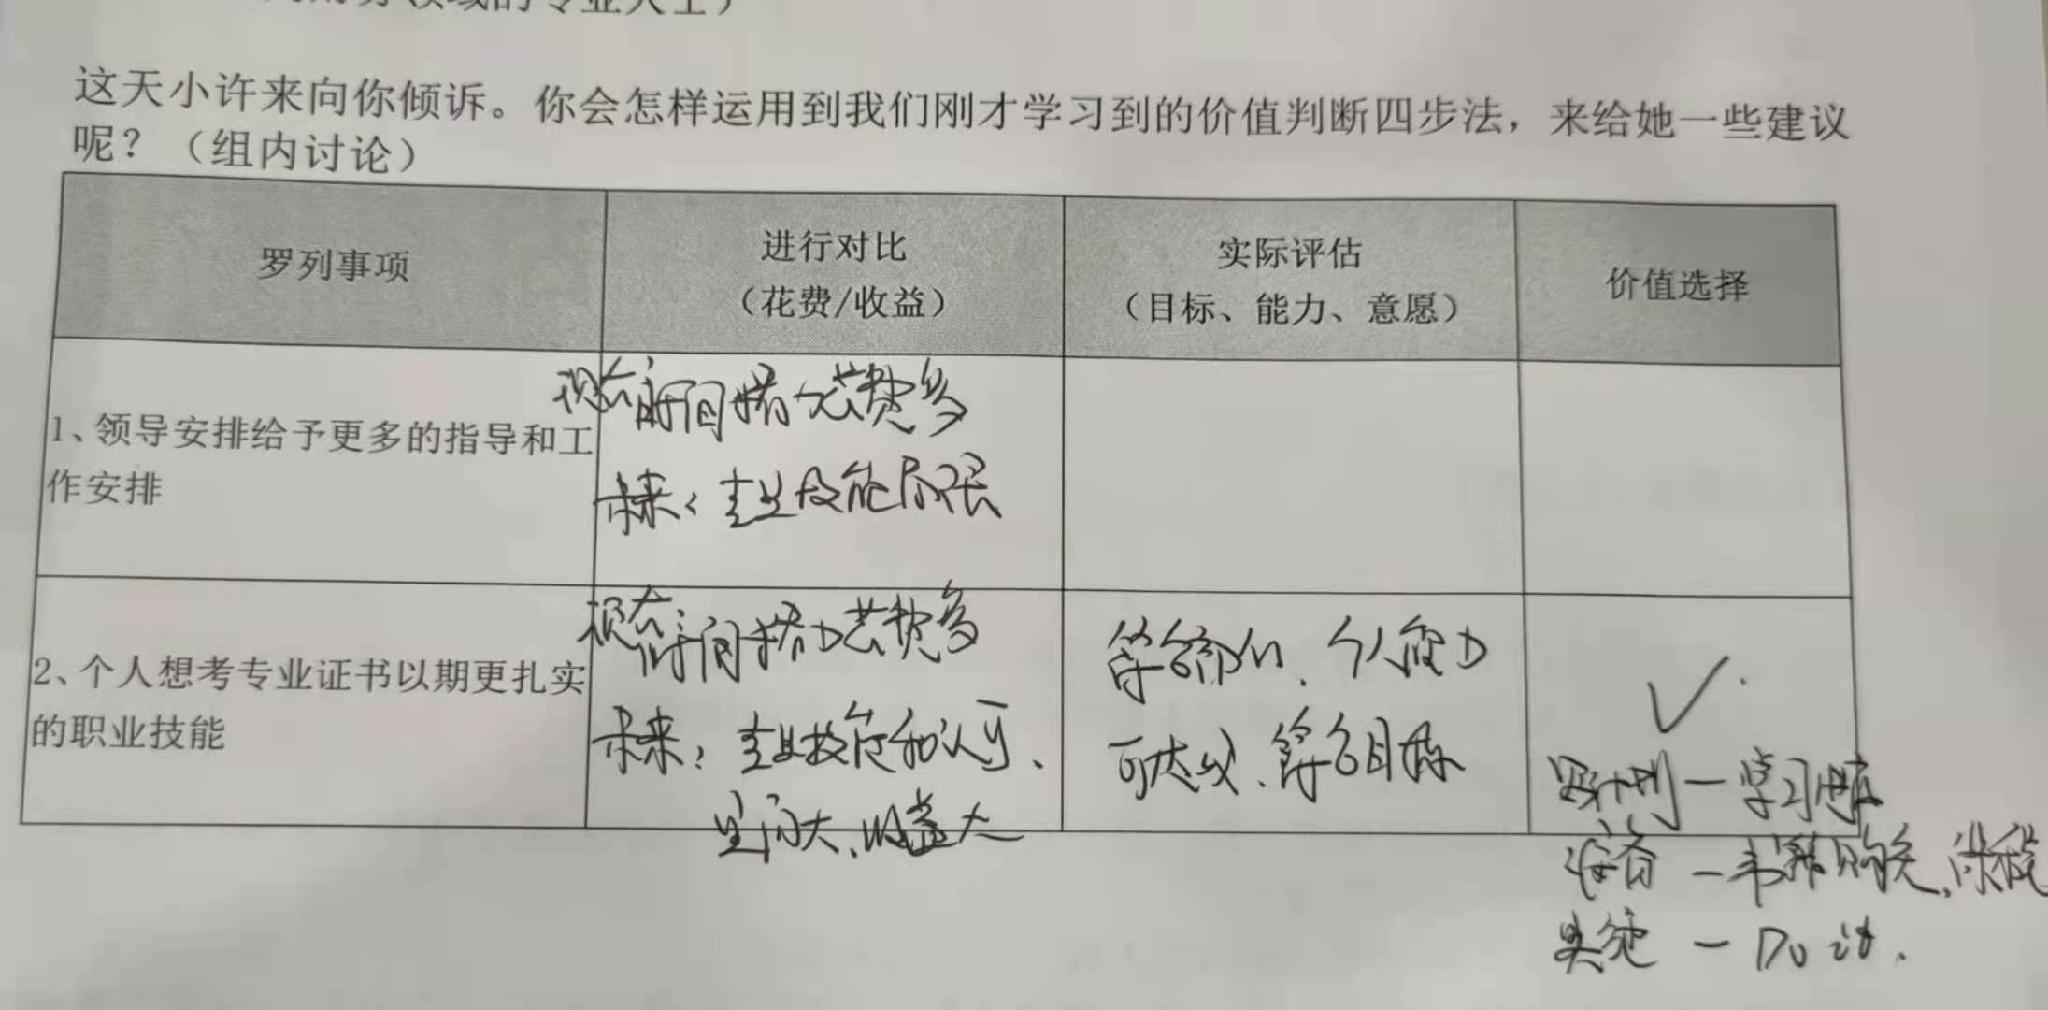 领域的专业人士）
这天小许来向你倾诉。你会怎样运用到我们刚才学习到的价值判断四步法，来给她一些建议
呢？（组内讨论）
罗列事项
进行对比
（花费/收益）
实际评估
（目标、能力、意愿）
价值选择
1、领导安排给予更多的指导和工
作安排
现在：
时间精力花费多
未来：专业技能局限
2、个人想考专业证书以期更扎实
的职业技能
现在：
时间精力花费多
未来：专业技能和认可、
空间大、收益大
符合、个人能力
可达成、符合目标
✓
计划－学习
准备－书籍购买、
实施－Do it.